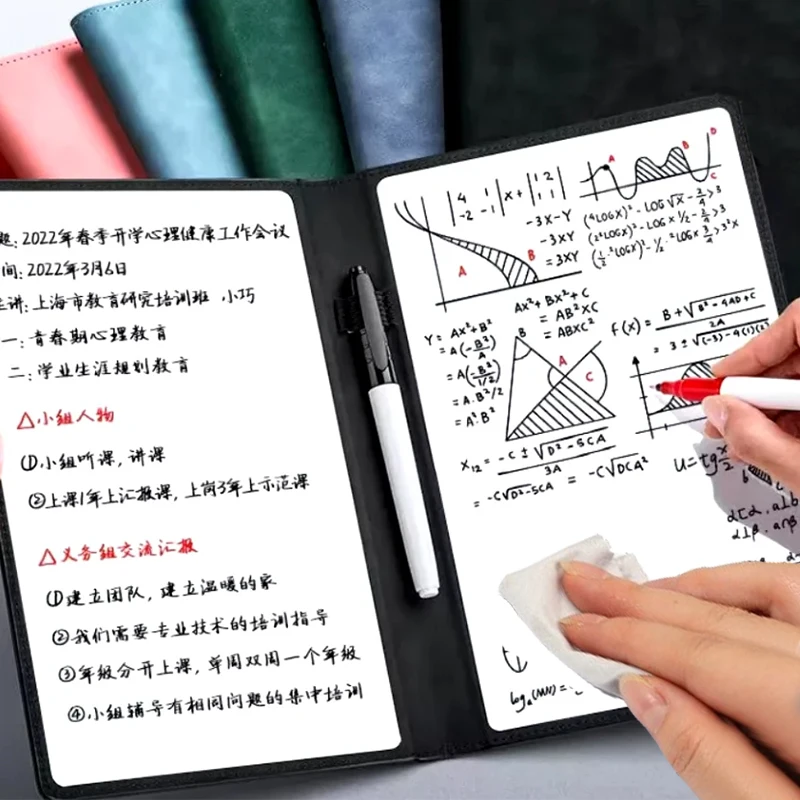 题:2022年春季开学心理健康工作会议
间:2022年3月6日
主讲:上海市教育研究培训班 小巧
一:青春期心理教育
二:学业生涯规划教育
△小组人物
①小组听课,讲课
②上课1年上汇报课,上岗3年上示范课
△义务组交流汇报
①建立团队,建立温暖的家
②我们需要专业技术的培训指导
③年级分开上课,单周双周一个年级
④小组辅导有相同问题的集中培训
|4 1| x + |1 2|
|-2 -1| |1 1|
-3X-Y
-3XY
= 3XY
A
B
A
B
C
D
(⁴LOGX)² - LOG√X - 3/4 > 3
(²LOGX)² - LOGX 1/2 - 3/4 > 3
(½·²LOGX)² - ½·²LOGX 3/4 > 3²X
AX² + BX² + C
= ABX²C
= ABXC²
Y = AX² + B²
= A(-B²/A)
= A(-B²/1/2)
= A·B²/2
= A²·B²
B
A
C
f(X) = B+√B²-4AD+C / 2A
= 3±√(-3)-4(1)(2)
X₁₂ = -C±√D²-5CA / 3A
= -C√D²-5CA = -C√DCA²
U = tg x/2
b
α⊥β
logₐ(MN) =